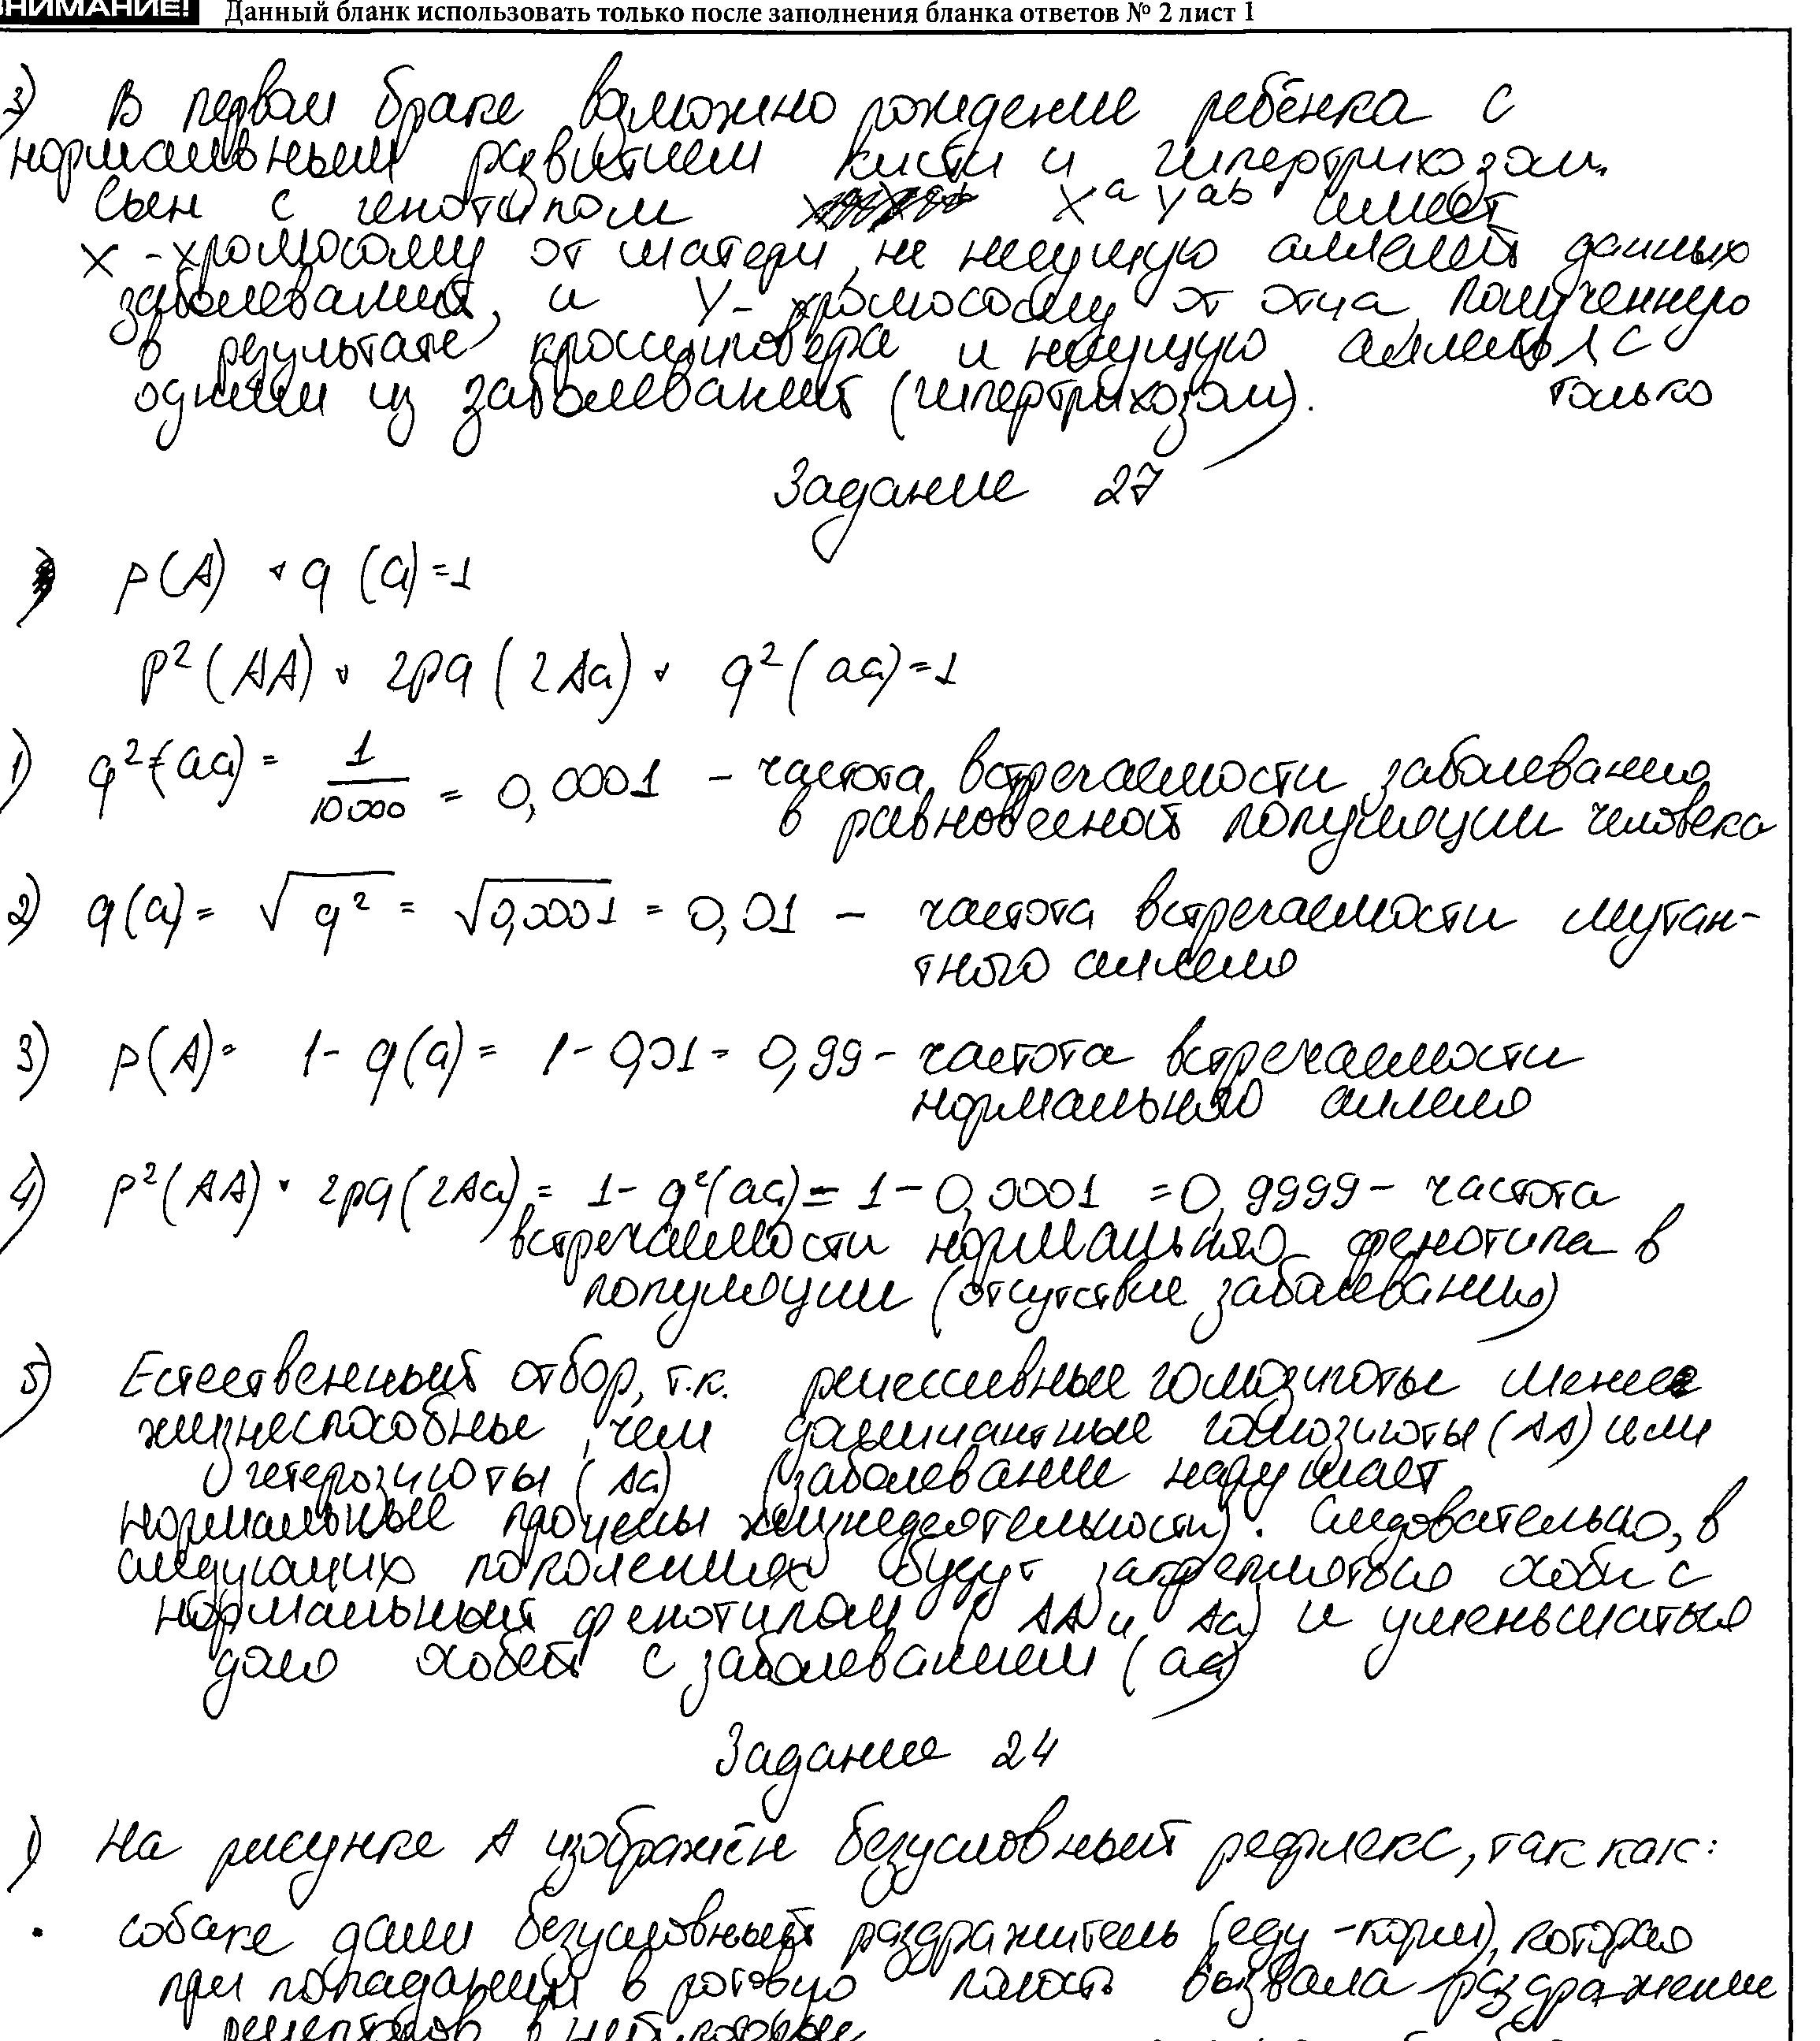 ВНИМАНИЕ! Данный бланк использовать только после заполнения бланка ответов № 2 лист 1
3) В первом браке возможно рождение ребёнка с
нормальным развитием кисти и гипертрихозом.
Сын с генотипом XᵃYᵃᵇ имеет
X-хромосому от матери, не несущую аллелей данных
заболеваний, и Y-хромосому от отца, полученную
в результате кроссинговера и несущую аллель с
одним из заболеваний (гипертрихозом). только
Задание 27
p(A) + q(a)=1
p²(AA) + 2pq(2Aa) + q²(aa)=1
1) q²(aa) = 1/10000 = 0,0001 – частота встречаемости заболевания
в равновесной популяции человека
2) q(a) = √q² = √0,0001 = 0,01 – частота встречаемости мутан-
тного аллеля
3) p(A) = 1 - q(a) = 1 - 0,01 = 0,99 - частота встречаемости
нормального аллеля
4) p²(AA) + 2pq(2Aa) = 1 - q²(aa) = 1 - 0,0001 = 0,9999 - частота
встречаемости нормального фенотипа в
популяции (отсутствие заболевания)
5) Естественный отбор, т.к. рецессивные гомозиготы менее
жизнеспособны, чем доминантные гомозиготы (AA) или
гетерозиготы (Aa) (заболевание нарушает
нормальные процессы жизнедеятельности). Следовательно, в
следующих поколениях будут закрепляться особи с
нормальным фенотипом (AA и Aa) и уменьшаться
доля особей с заболеванием (aa)
Задание 24
1) На рисунке А изображён безусловный рефлекс, так как:
· собаке дали безусловный раздражитель (еду - корм), которая
при попадании в ротовую полость вызвала раздражение
рецепторов в ней